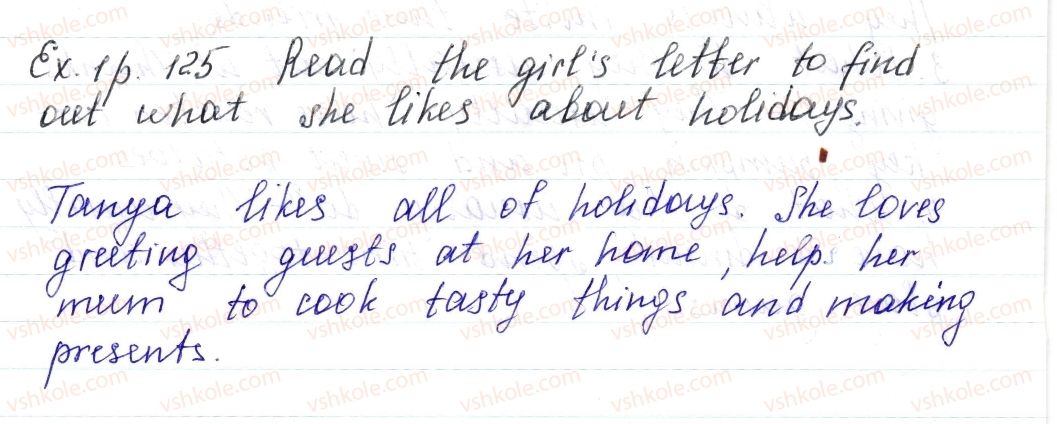 Ex. 1 p. 125 Read the girl's letter to find
out what she likes about holidays.
Tanya likes all of holidays. She loves
greeting guests at her home, help her
mum to cook tasty things and making
presents.